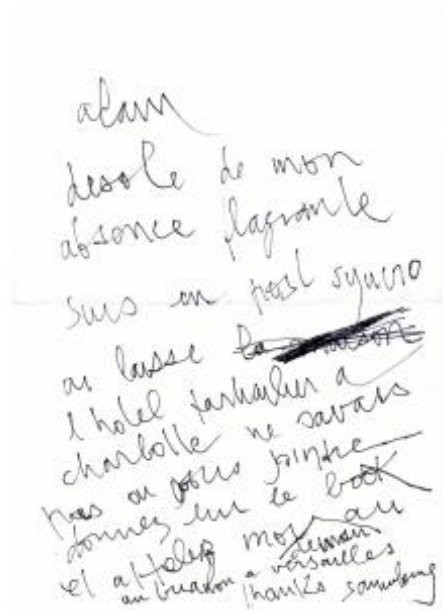 alain
desole de mon
absence flagrante
suis en post syncro
ai laisse la maison
l hotel particulier a
charlotte ne savais
pas ou vous joindre
donnez lui le book
et appelez moi au
demain
au trianon a versailles
thanks